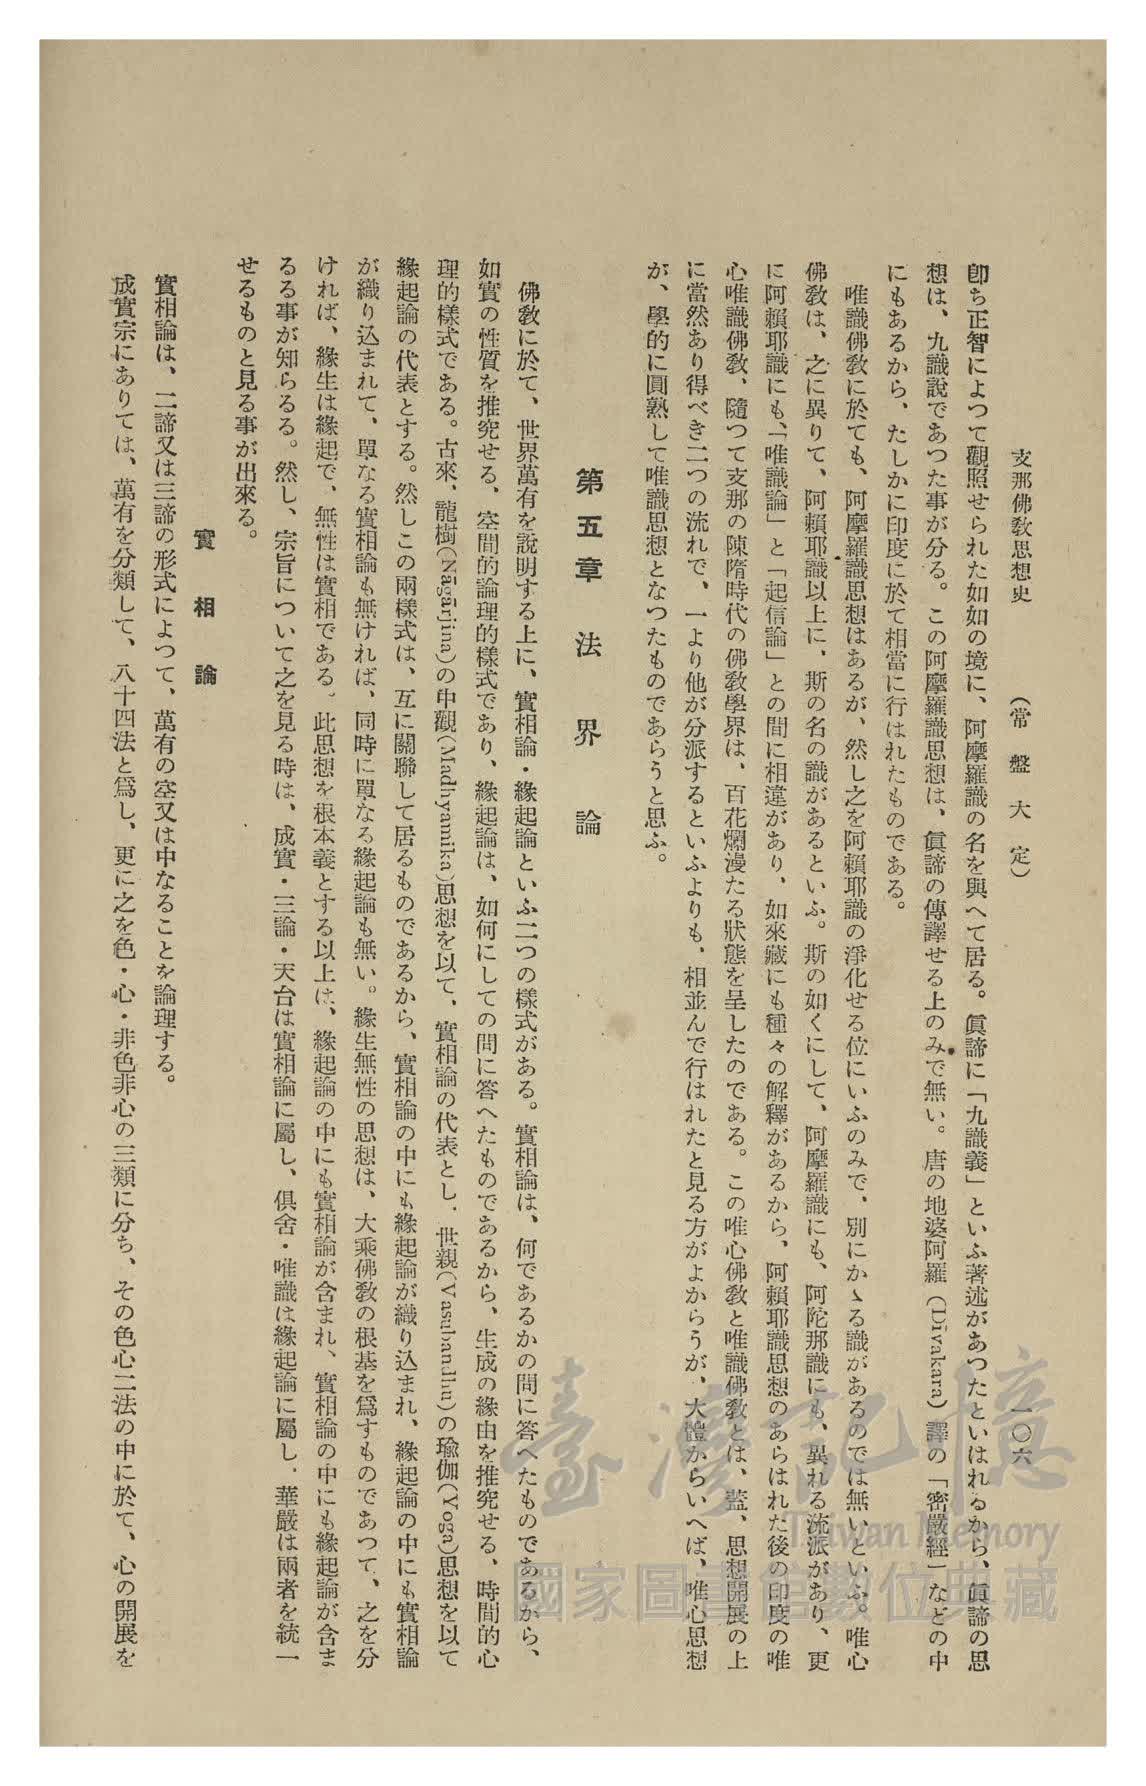 支那佛敎思想史　（常盤大定）　一〇六
卽ち正智によつて觀照せられた如如の境に、阿摩羅識の名を與へて居る。眞諦に「九識義」といふ著述があつたといはれるから、眞諦の思
想は、九識說であつた事が分る。この阿摩羅識思想は、眞諦の傳譯せる上のみで無い。唐の地婆阿羅（Dīvakara）譯の「密嚴經」などの中
にもあるから、たしかに印度に於て相當に行はれたものである。
唯識佛敎に於ても、阿摩羅識思想はあるが、然し之を阿賴耶識の淨化せる位にいふのみで、別にかゝる識があるのでは無いといふ。唯心
佛敎は、之に異りて、阿賴耶識以上に、斯の名の識があるといふ。斯の如くにして、阿摩羅識にも、阿陀那識にも、異れる流派があり、更
に阿賴耶識にも、「唯識論」と「起信論」との間に相違があり、如來藏にも種々の解釋があるから、阿賴耶識思想のあらはれた後の印度の唯
心唯識佛敎、隨つて支那の陳隋時代の佛敎學界は、百花爛漫たる狀態を呈したのである。この唯心佛敎と唯識佛敎とは、蓋、思想開展の上
に當然あり得べき二つの流れで、一より他が分派するといふよりも、相並んで行はれたと見る方がよからうが、大體からいへば、唯心思想
が、學的に圓熟して唯識思想となつたものであらうと思ふ。
第五章　法界論
佛敎に於て、世界萬有を說明する上に、實相論・緣起論といふ二つの樣式がある。實相論は、何であるかの問に答へたものであるから、
如實の性質を推究せる、空間的論理的樣式であり、緣起論は、如何にしての問に答へたものであるから、生成の緣由を推究せる、時間的心
理的樣式である。古來、龍樹（Nāgārjina）の中觀（Madhyamika）思想を以て、實相論の代表とし、世親（Vasubandhu）の瑜伽（Yoga）思想を以て
緣起論の代表とする。然しこの兩樣式は、互に關聯して居るものであるから、實相論の中にも緣起論が織り込まれ、緣起論の中にも實相論
が織り込まれて、單なる實相論も無ければ、同時に單なる緣起論も無い。緣生無性の思想は、大乘佛敎の根基を爲すものであつて、之を分
ければ、緣生は緣起で、無性は實相である。此思想を根本義とする以上は、緣起論の中にも實相論が含まれ、實相論の中にも緣起論が含ま
るる事が知らるる。然し、宗旨について之を見る時は、成實・三論・天台は實相論に屬し、俱舍・唯識は緣起論に屬し、華嚴は兩者を統一
せるものと見る事が出來る。
實相論
實相論は、二諦又は三諦の形式によつて、萬有の空又は中なることを論理する。
成實宗にありては、萬有を分類して、八十四法と爲し、更に之を色・心・非色非心の三類に分ち、その色心二法の中に於て、心の開展を
臺灣記憶
Taiwan Memory
國家圖書館數位典藏